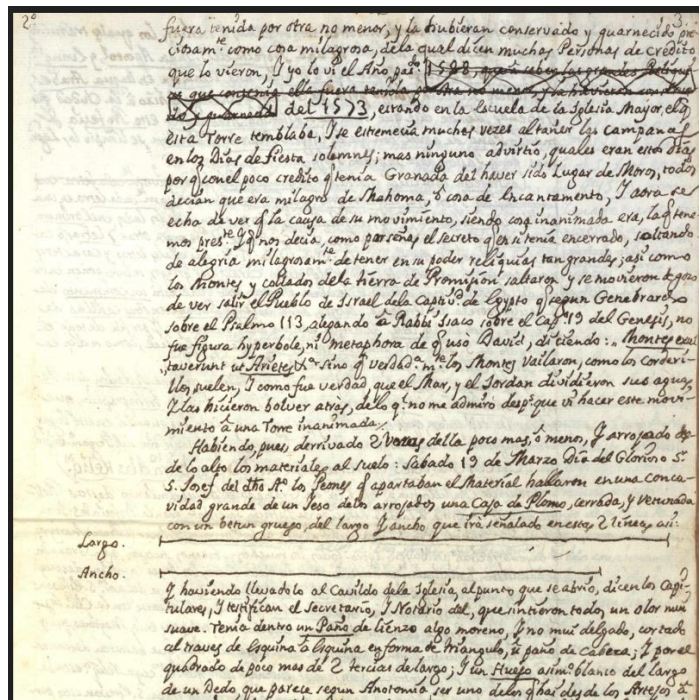 2º 3.
fuera tenida por otra no menor, y la hubieran conservado y guarnecido pre
ciosamte como cosa milagrosa, de la qual dicen muchas Personas de crédito
que lo vieron, I yo lo vi el Año pasdo 1588, que à saber las grandes Reliquias
que contenia ella fuera tenida por otra no menor, y la havieran
y guarnad del 1573, estando en la escuela de la Iglesia Mayor, que
esta Torre temblaba, I se estremecia muchas vezes al tañer las campanas
en los Dias de fiesta solemnes; mas ninguno advirtio, quales eran estos Dias
por q con el poco credito q tenia Granada del haver sido Lugar de Moros, todos
decian que era milagro de Mahoma, ò cosa de Encantamento, I aora se
echa de ver q la causa de su movimiento, siendo cosa inanimada era, la q tene
mos preste I q nos decia, como por señas el secreto q en si tenia encerrado, saltando
de alegria milagrosamte de tener en su poder reliquias tan grandes; asi como
los Montes y collados de la tierra de Promision saltaron y se movieron de gozo
de ver salir el Pueblo de Israel dela Captivd de Egypto q segun Genebrardo
sobre el Psalmo 113, alegando à Rabbi Isaco sobre el Capº 19 del Genesis, no
fue figura hyperbole, ni metaphora de q usò David, diciendo: „ Montes exul
„taverunt ut Arietes &a sino q verdadmte los Montes vailaron, como los corderi
llos suelen, I como fue verdad, que el Mar, y el Jordan dividieron sus aguas
I las hicieron bolver atràs, de lo q no me admiro despº que vi hacer este movi-
miento à una Torre inanimada.
Habiendo, pues, derrivado 2 varas della poco mas, ò meno, I arrojado
de lo alto los materiales al suelo: Sabado 19 de Marzo Dia del Glorioso Sr
S. Josef del dho Aº los Peones q apartaban el Material hallaron en una conca-
vidad grande de un Ieso de los arrojados una Caja de Plomo, cerrada, y veturnada
con un betun grueso, del largo I ancho, que ira señalado en estas 2 lineas, asi:
Largo.
Ancho.
I haviendo llevadolo al Cavildo de la Iglesia, al punto que se abrio, dicen los Capi-
tulares, I testifican el Secretario, I Notario del, que sintieron todos, un olor mui
suave. Tenia dentro un Paño de lienzo algo moreno, I no mui delgado, cortado
al traves de Esquina à Esquina en forma de Triangulo, ù paño de Cabeza; I por el
quadrado de poco mas de 2 tercias de largo; I un Hueso asimº blanco del largo
de un Dedo, que parece segun Anotomia, ser uno de los q hai desde los Artejos